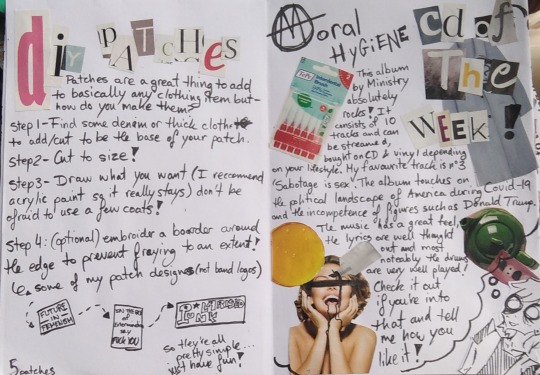 diy PATCHES
Patches are a great thing to add
to basically any clothing item but-
how do you make them?
Step 1- Find some denim or thick cloth
to add/cut to be the base of your patch.
Step2- Cut to size!
Step3- Draw what you want (I recommend
acrylic paint so it really stays) don't be
afraid to use a few coats!
Step 4: (optional) embroider a boarder around
the edge to prevent fraying to an extent!
some of my patch designs (not band logos)
FUTURE
IN
FEMINISM
FUCK YOU
PUNK
so they're all...
pretty simple...
just have fun!
5 patches
Moral
HYGIENE
cd of
The
WEEK!
TePe
This album
by Ministry
absolutely
rocks! It
consists of 10
tracks and can
be streamed,
bought on CD & vinyl depending
on your lifestyle. My favourite track is n°3
'Sabotage is sex'. The album touches on
the political landscape of America during Covid-19
and the incompetence of figures such as Donald Trump.
The music has a great feel,
the lyrics are well thought
out and most
noteably the drums
are very well played!
Check it out
if you're into
that and tell
me how you
like it!